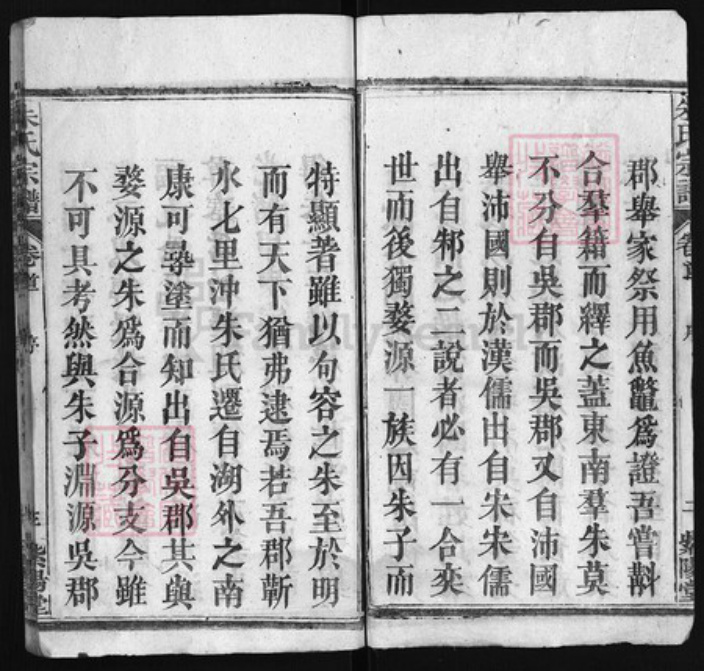 郡舉家祭用魚鼈爲證吾嘗斠
合羣籍而繹之蓋東南羣朱莫
不分自吳郡而吳郡又自沛國
舉沛國則於漢儒出自宋宋儒
出自邾之二說者必有一合奕
世而後獨婺源一族因朱子而
特顯著雖以句容之朱至於明
而有天下猶弗逮焉若吾郡蘄
水七里沖朱氏遷自湖外之南
康可尋塗而知出自吳郡其與
婺源之朱爲合源爲分支今雖
不可具考然與朱子淵源吳郡
朱氏宗譜 卷首 序 紫陽堂